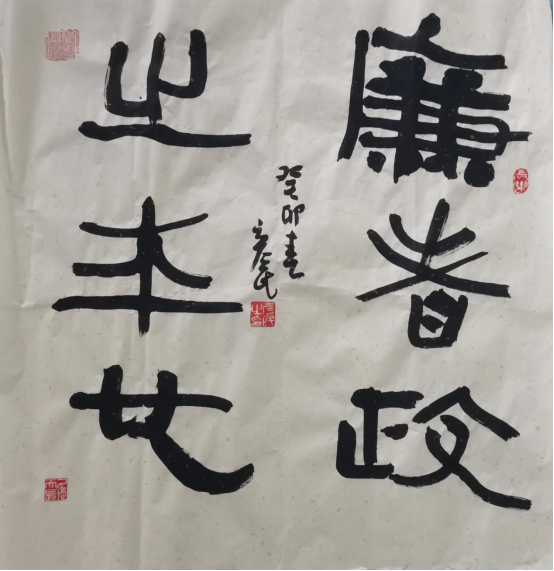 廉者政
之本也
癸卯春
彦民